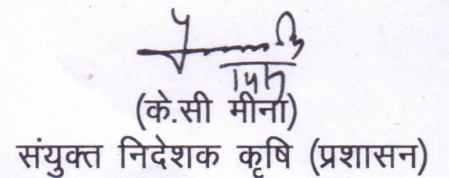 (के.सी मीना)
संयुक्त निदेशक कृषि (प्रशासन)